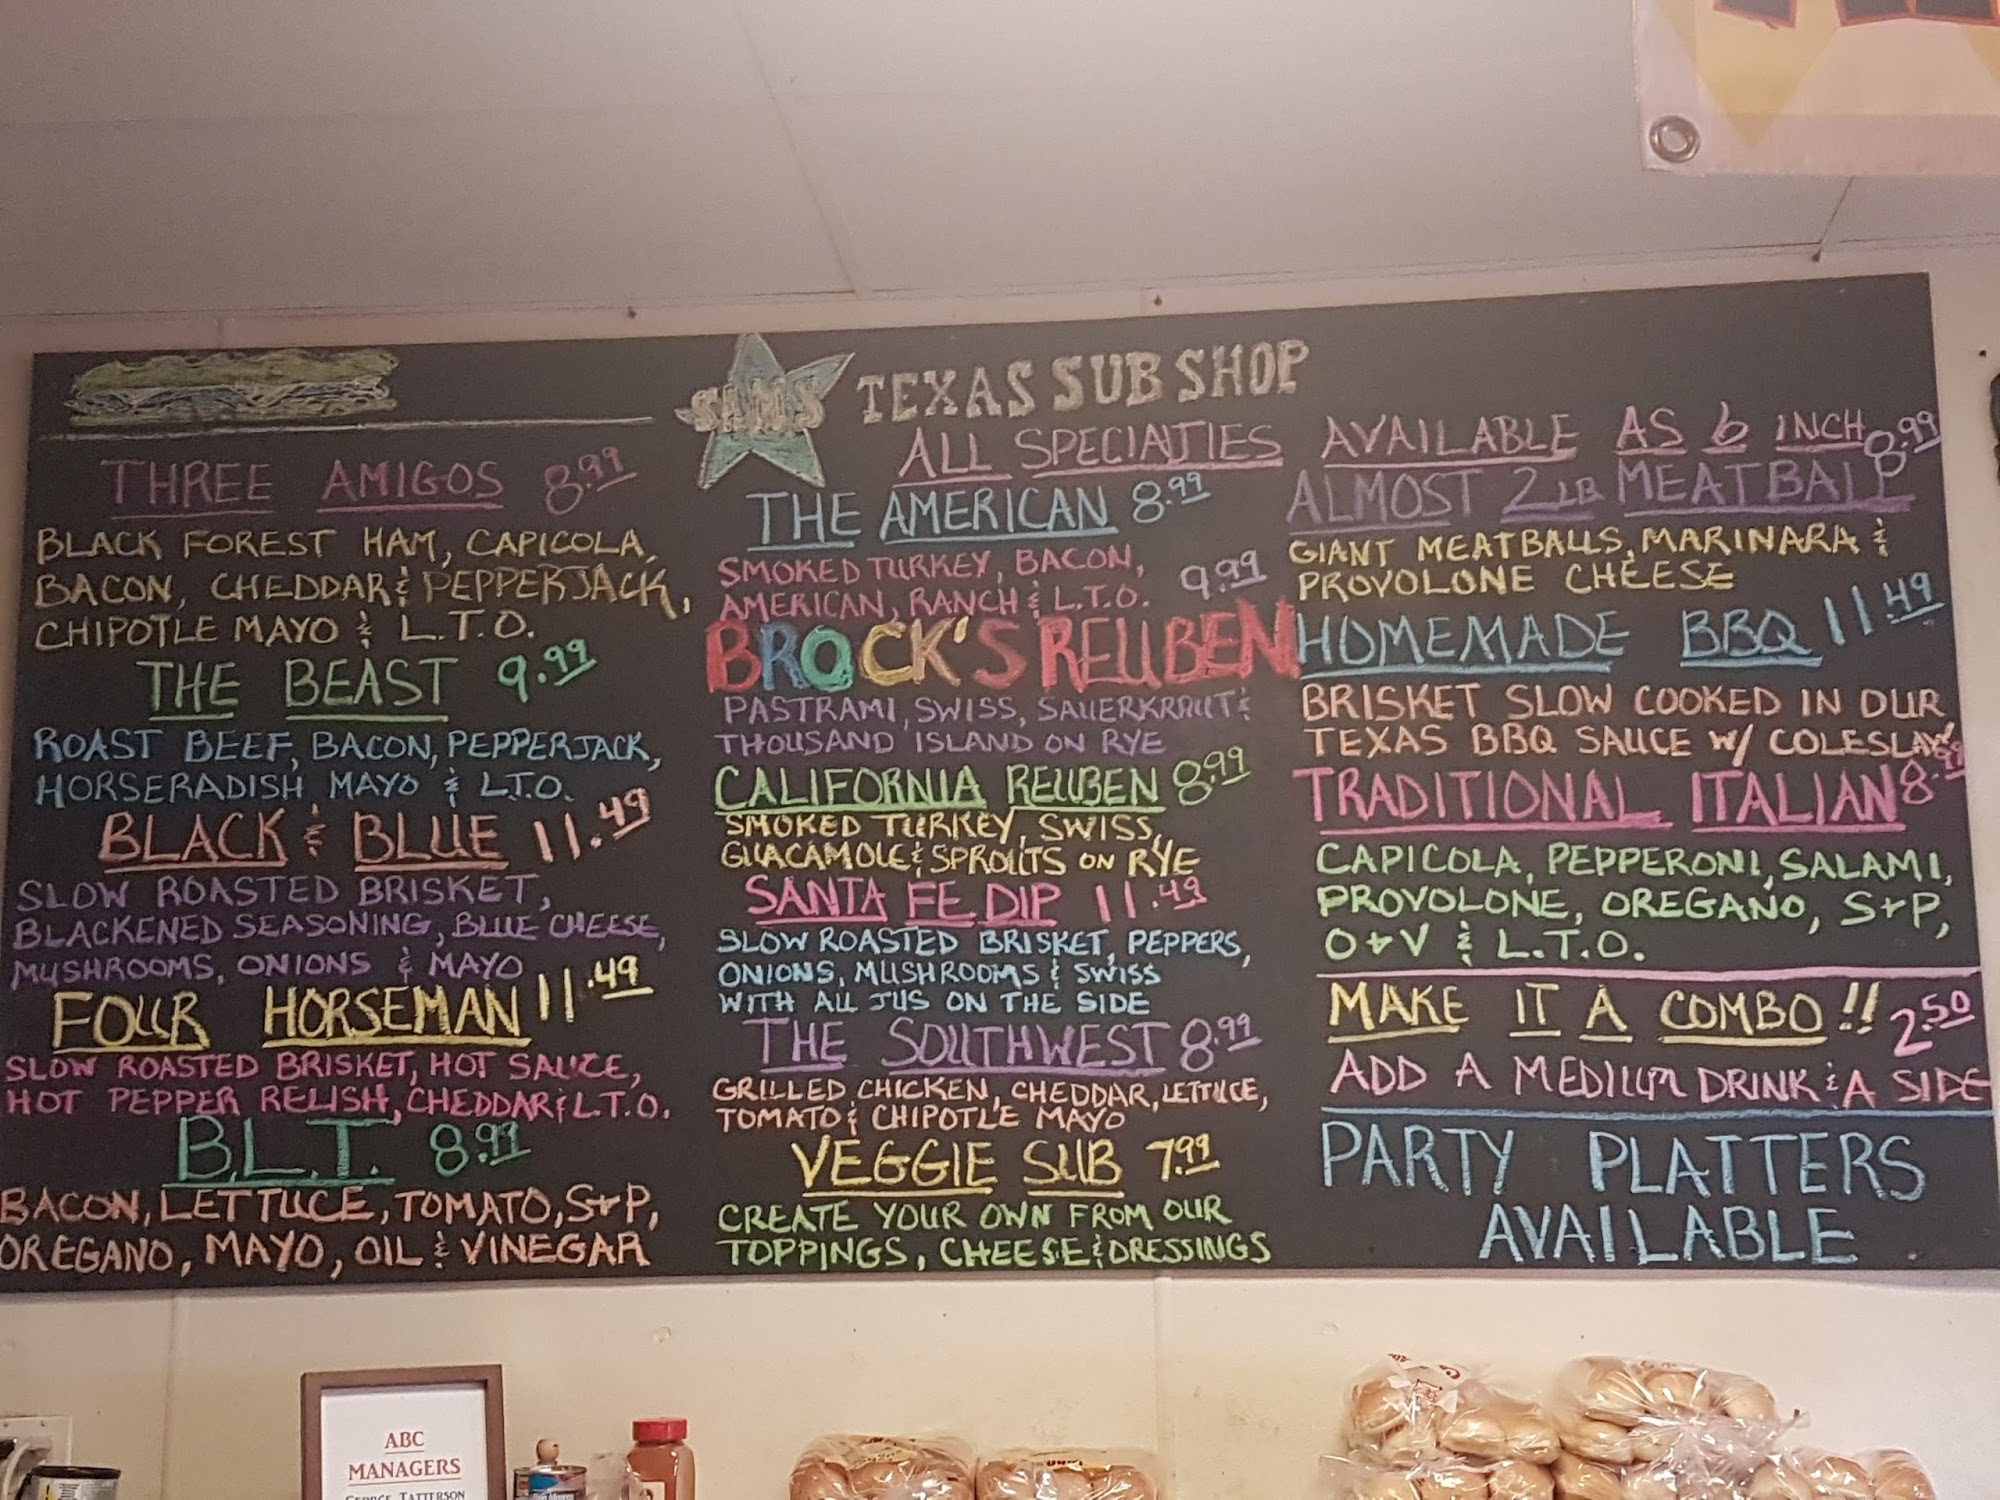 SAM'S TEXAS SUB SHOP
ALL SPECIALTIES AVAILABLE AS 6 INCH
THREE AMIGOS 8.99
BLACK FOREST HAM, CAPICOLA,
BACON, CHEDDAR & PEPPERJACK,
CHIPOTLE MAYO & L.T.O.
THE BEAST 9.99
ROAST BEEF, BACON, PEPPERJACK,
HORSERADISH MAYO & L.T.O.
BLACK & BLUE 11.49
SLOW ROASTED BRISKET,
BLACKENED SEASONING, BLUE CHEESE,
MUSHROOMS, ONIONS & MAYO
FOUR HORSEMAN 11.49
SLOW ROASTED BRISKET, HOT SAUCE,
HOT PEPPER RELISH, CHEDDAR & L.T.O.
B.L.T. 8.99
BACON, LETTUCE, TOMATO, S+P,
OREGANO, MAYO, OIL & VINEGAR
THE AMERICAN 8.99
SMOKED TURKEY, BACON,
AMERICAN, RANCH & L.T.O. 9.99
BROCK'S REUBEN
PASTRAMI, SWISS, SAUERKRAUT &
THOUSAND ISLAND ON RYE
CALIFORNIA REUBEN 8.99
SMOKED TURKEY, SWISS,
GUACAMOLE & SPROUTS ON RYE
SANTA FE DIP 11.49
SLOW ROASTED BRISKET, PEPPERS,
ONIONS, MUSHROOMS & SWISS
WITH ALL JUS ON THE SIDE
THE SOUTHWEST 8.99
GRILLED CHICKEN, CHEDDAR, LETTUCE,
TOMATO & CHIPOTLE MAYO
VEGGIE SUB 7.99
CREATE YOUR OWN FROM OUR
TOPPINGS, CHEESE & DRESSINGS
ALMOST 2 LB MEATBALL 8.99
GIANT MEATBALLS, MARINARA &
PROVOLONE CHEESE
HOMEMADE BBQ 11.49
BRISKET SLOW COOKED IN OUR
TEXAS BBQ SAUCE W/ COLESLAW
TRADITIONAL ITALIAN 8.99
CAPICOLA, PEPPERONI, SALAMI,
PROVOLONE, OREGANO, S+P,
O+V & L.T.O.
MAKE IT A COMBO!! 2.50
ADD A MEDIUM DRINK & A SIDE
PARTY PLATTERS
AVAILABLE
ABC
MANAGERS
GEORGE TATTERSON